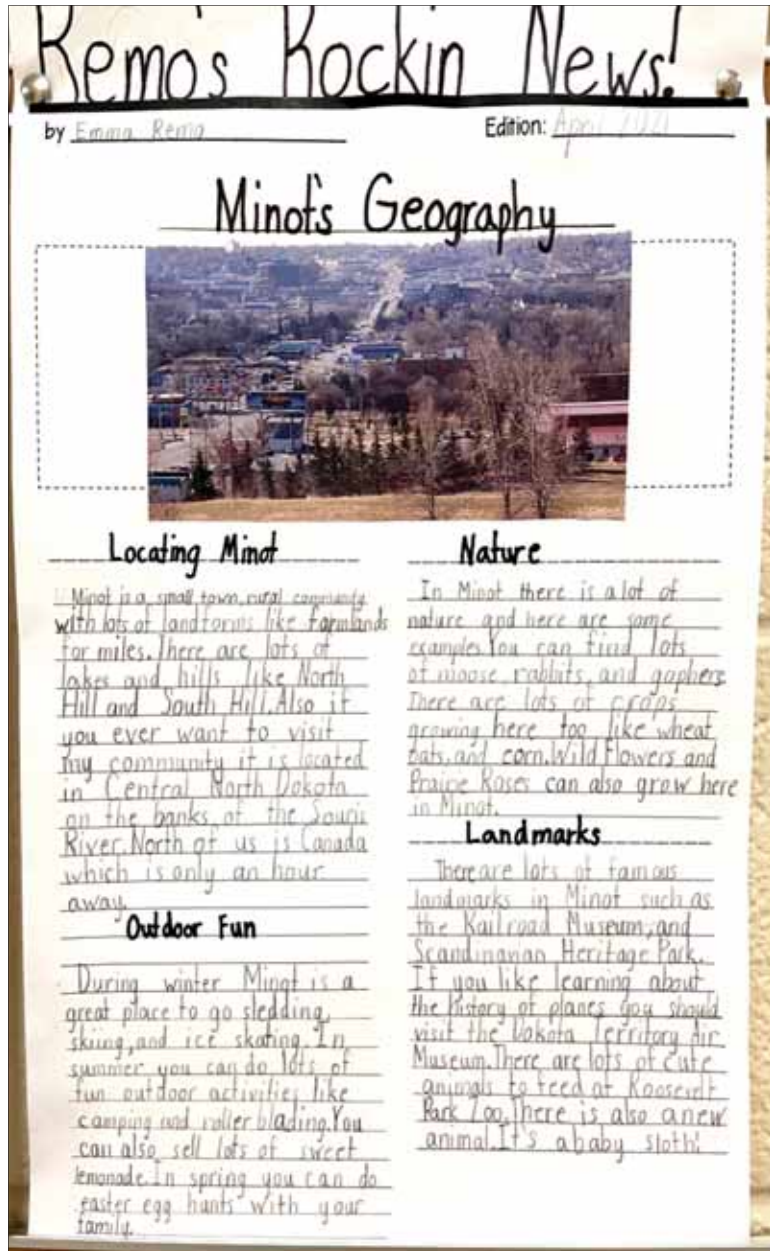 Remo's Rockin News!
by Emma Remo
Edition: April 2021
Minot's Geography
Locating Minot
Minot is a small town, rural community
with lots of landforms like farmlands
for miles. There are lots of
lakes and hills like North
Hill and South Hill. Also if
you ever want to visit
my community it is located
in Central North Dakota
on the banks of the Souris
River. North of us is Canada
which is only an hour
away.
Outdoor Fun
During winter Minot is a
great place to go sledding,
skiing, and ice skating. In
summer you can do lots of
fun outdoor activities like
camping and roller blading. You
can also sell lots of sweet
lemonade. In spring you can do
easter egg hunts with your
family.
Nature
In Minot there is a lot of
nature and here are some
examples. You can find lots
of moose, rabbits, and gophers.
There are lots of crops
growing here too like wheat
oats, and corn. Wild Flowers and
Praire Roses can also grow here
in Minot.
Landmarks
There are lots of famous
landmarks in Minot such as
the Railroad Museum, and
Scandinavian Heritage Park.
If you like learning about
the history of planes you should
visit the Dakota Territory Air
Museum. There are lots of cute
animals to feed at Roosevelt
Park Zoo. There is also a new
animal. It's a baby sloth!